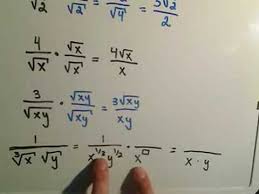 √2 √2 √4 2
4/√x · √x/√x = 4√x/x
3/√xy · √xy/√xy = 3√xy/xy
1/(∛x √y) = 1/(x^1/3 y^1/2) · /x^□ = /(x·y)